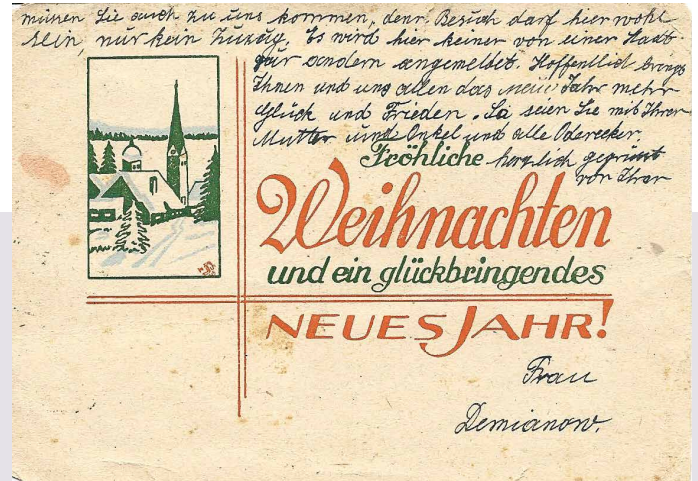 müssen Sie auch zu uns kommen, denn Besuch darf hier wohl
sein, nur kein Zuzug. Es wird hier keiner von einer Stadt
zur andern angemeldet. Hoffentlich bringt
Ihnen und uns allen das neue Jahr mehr
Glück und Frieden. So seien Sie mit Ihrer
Mutter und Onkel und alle Oderecker,
Fröhliche herzlich gegrüsst
von Ihrer
Weihnachten
und ein glückbringendes
NEUES JAHR!
Frau
Demianow.